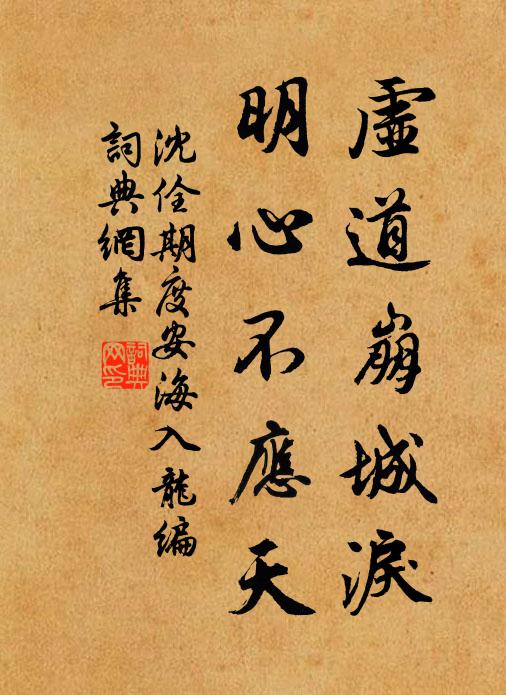 虛道崩城淚
明心不應天
沈佺期度安海入龍編
詞典網集
詞典
网印